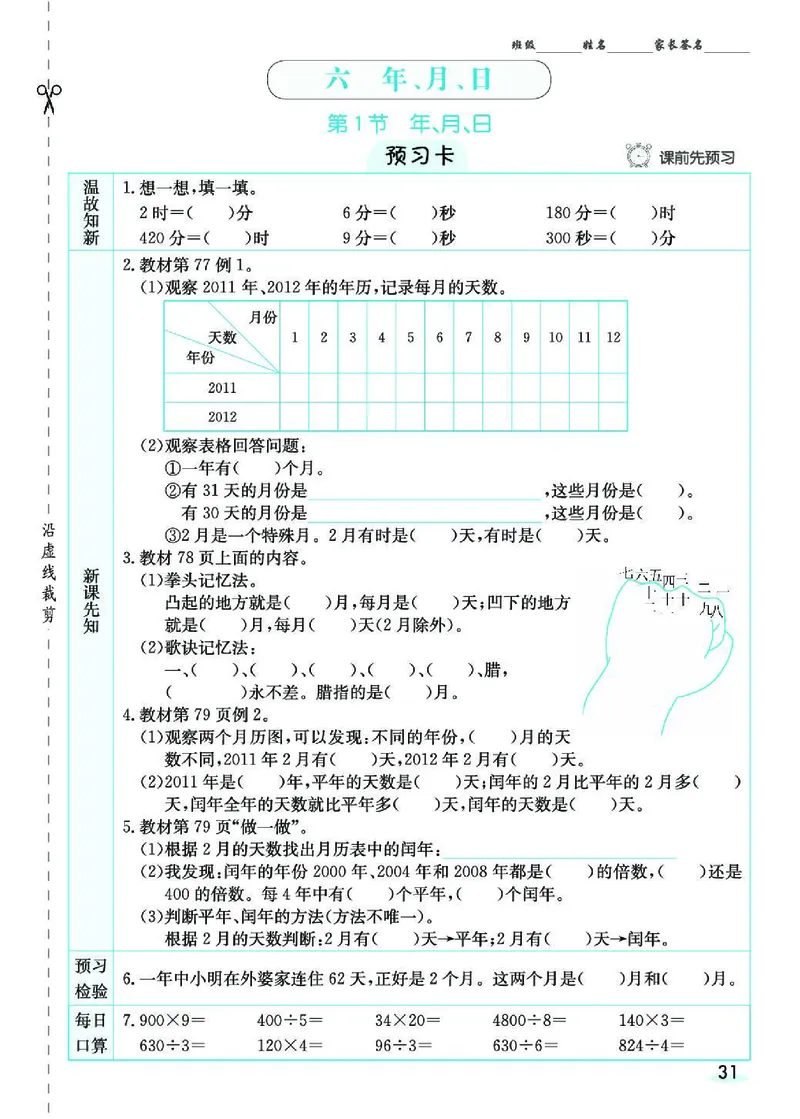 班级______姓名______家长签名______
六 年、月、日
第1节 年、月、日
预习卡
课前先预习
沿虚线裁剪
温故知新
1.想一想,填一填。
2时=( )分 6分=( )秒 180分=( )时
420分=( )时 9分=( )秒 300秒=( )分
新课先知
2.教材第77例1。
(1)观察2011年、2012年的年历,记录每月的天数。
月份
天数
年份
1 2 3 4 5 6 7 8 9 10 11 12
2011
2012
(2)观察表格回答问题:
①一年有( )个月。
②有31天的月份是______,这些月份是( )。
有30天的月份是______,这些月份是( )。
③2月是一个特殊月。2月有时是( )天,有时是( )天。
3.教材78页上面的内容。
(1)拳头记忆法。
凸起的地方就是( )月,每月是( )天;凹下的地方
就是( )月,每月( )天(2月除外)。
七六五四三二一
十十十九八
二一
(2)歌诀记忆法:
一、( )、( )、( )、( )、( )、腊,
( )永不差。腊指的是( )月。
4.教材第79页例2。
(1)观察两个月历图,可以发现:不同的年份,( )月的天
数不同,2011年2月有( )天,2012年2月有( )天。
(2)2011年是( )年,平年的天数是( )天;闰年的2月比平年的2月多( )
天,闰年全年的天数就比平年多( )天,闰年的天数是( )天。
5.教材第79页“做一做”。
(1)根据2月的天数找出月历表中的闰年:______
(2)我发现:闰年的年份2000年、2004年和2008年都是( )的倍数,( )还是
400的倍数。每4年中有( )个平年,( )个闰年。
(3)判断平年、闰年的方法(方法不唯一)。
根据2月的天数判断:2月有( )天→平年;2月有( )天→闰年。
预习检验
6.一年中小明在外婆家连住62天,正好是2个月。这两个月是( )月和( )月。
每日口算
7.900×9= 400÷5= 34×20= 4800÷8= 140×3=
630÷3= 120×4= 96÷3= 630÷6= 824÷4=
31